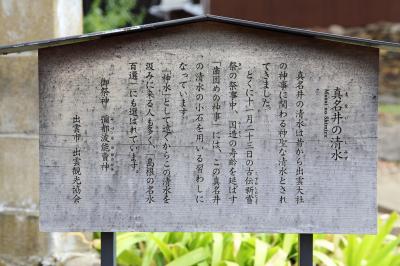 真名井の清水
Manai no Shimizu
真名井の清水は昔から出雲大社
の神事に関わる神聖な清水とされ
てきました。
とくに十一月二十三日の古伝新嘗
祭の祭事中、国造の寿齢を延ばす
「歯固めの神事」には、この真名井
の清水の小石を用いる習わしに
なっています。
「神水」として遠くからこの清水を
汲みに来る人も多く、「島根の名水
百選」にも選ばれています。
御祭神 彌都波能賣神
出雲市・出雲観光協会